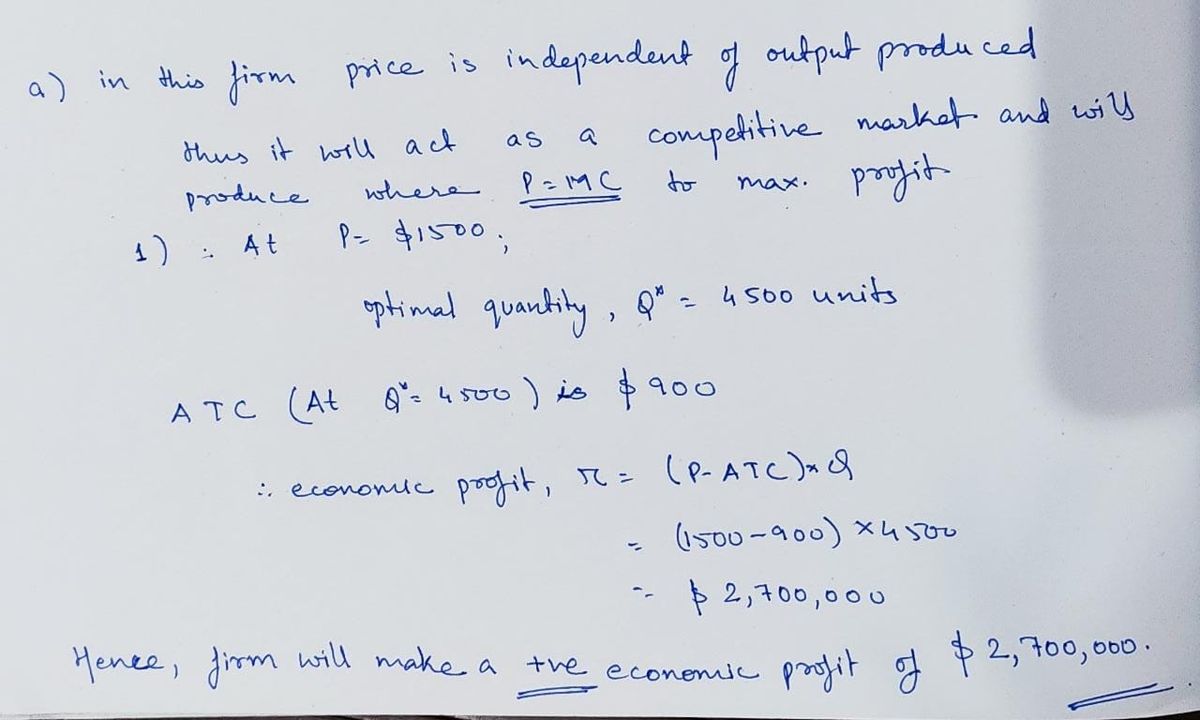 a) in this firm price is independent of output produced
thus it will act as a competitive market and will
produce where P=MC to max. profit
1) ∴ At P= $1500;
optimal quantity, Q* = 4500 units
ATC (At Q*= 4500) is $900
∴ economic profit, π = (P-ATC)×Q
= (1500-900) ×4500
= $ 2,700,000
Hence, firm will make a +ve economic profit of $ 2,700,000.